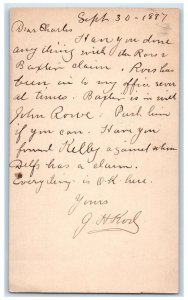 Sept 30 - 1887
Dear Charles
Have you done
any thing with the Ross
Baxter claim. Ross has
been in to my office several
times. Baxter is in with
John Rowe. Push him
if you can. Have you
found Kelly against whom
Delfs has a claim.
Everything is O.K. here.
Yours